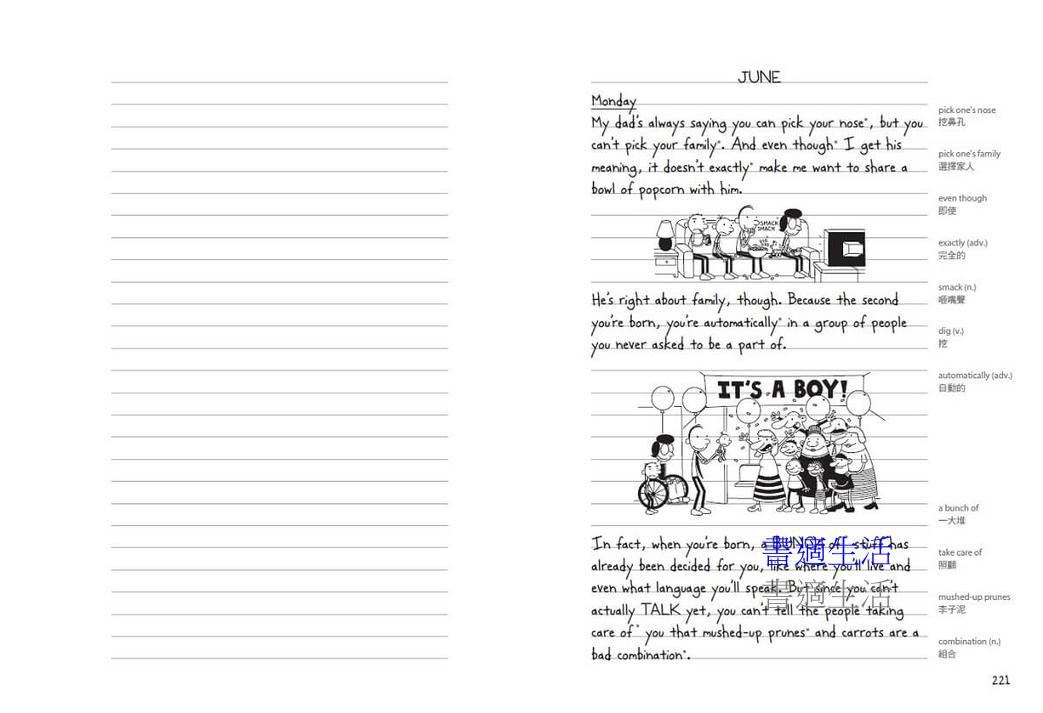 JUNE
Monday
My dad's always saying you can pick your nose*, but you
can't pick your family*. And even though* I get his
meaning, it doesn't exactly* make me want to share a
bowl of popcorn with him.
SMACK
SMACK
He's right about family, though. Because the second
you're born, you're automatically* in a group of people
you never asked to be a part of.
IT'S A BOY!
In fact, when you're born, a BUNCH of* stuff has
already been decided for you, like where you'll live and
even what language you'll speak. But since you can't
actually TALK yet, you can't tell the people taking
care of* you that mushed-up prunes* and carrots are a
bad combination*.
書適生活
書適生活
pick one's nose
挖鼻孔
pick one's family
選擇家人
even though
即使
exactly (adv.)
完全的
smack (n.)
咂嘴聲
dig (v.)
挖
automatically (adv.)
自動的
a bunch of
一大堆
take care of
照顧
mushed-up prunes
李子泥
combination (n.)
組合
221